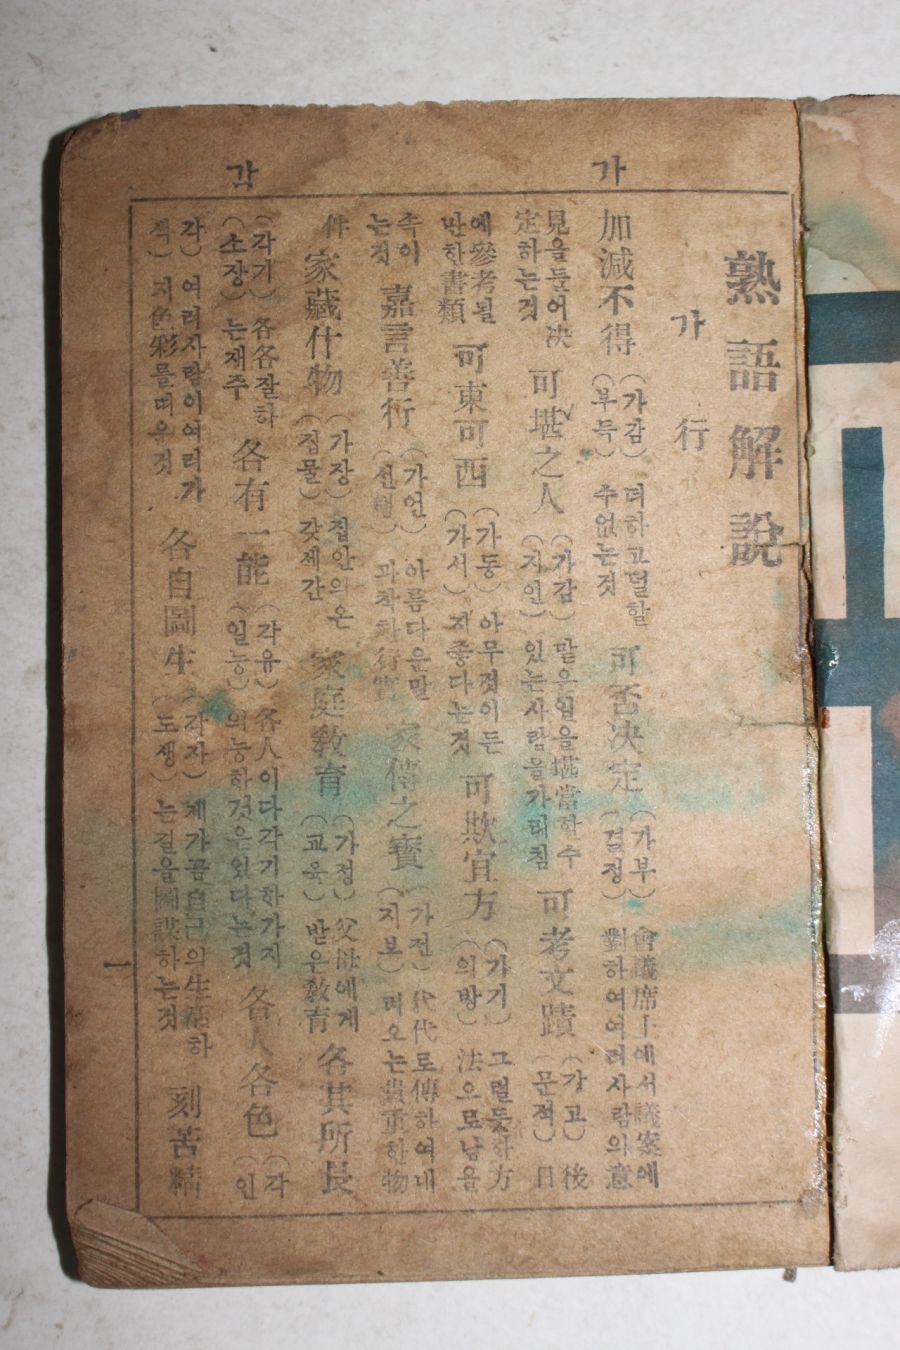 가
각
熟語解說
가行
加減不得 (가감부득) 더하고덜할수없는것 可否决定 (가부결정) 會議席上에서議案에對하여여러사람의意
見을들어决定하는것 可堪之人 (가감지인) 맡은일을堪當할수있는사람을가러침 可考文蹟 (강고문적) 日後
에參考될만한書類 可東可西 (가동가서) 아무것이든지좋다는것 可欺宜方 (가기의방) 그럴듯한方法으로남을
속이는것 嘉言善行 (가언선행) 아름다운말과착한行實 家傳之寶 (가전지보) 代代로傳하여내려오는貴重한物
件 家藏什物 (가장집물) 집안의온갖세간 家庭敎育 (가정교육) 父母에게받은敎育 各其所長
(각기소장) 各各잘하는재주 各有一能 (각유일능) 各人이다각기한가지의능한것은있다는것 各人各色 (각인
각색) 여러사람이여러가지色彩를띠운것 各自圖生 (각자도생) 제가끔自己의生活하는길을圖謀하는것 刻苦精
一